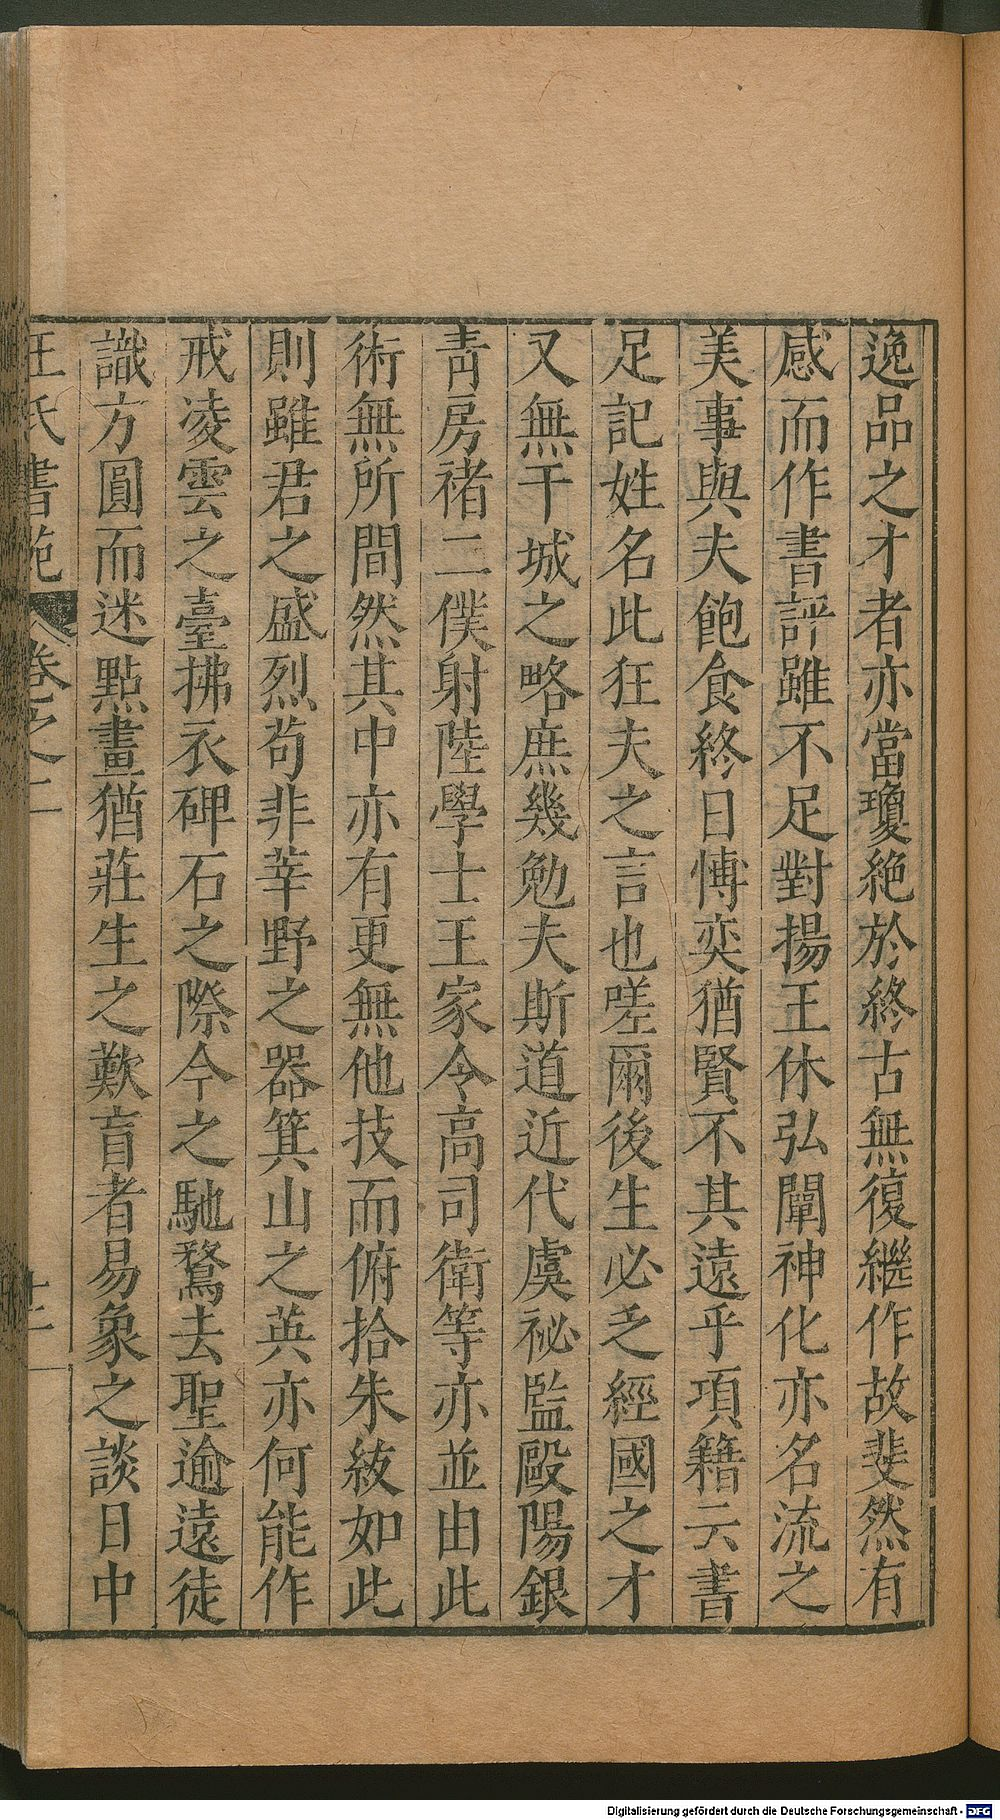 逸品之才者亦當瓊絶於終古無復繼作故斐然有
感而作書評雖不足對揚王休弘闡神化亦名流之
美事與夫飽食終日愽奕猶賢不其遠乎項籍云書
足記姓名此狂夫之言也嗟爾後生必乏經國之才
又無干城之略庶幾勉夫斯道近代虞祕監毆陽銀
青房禇二僕射陸學士王家令高司衛等亦並由此
術無所間然其中亦有更無他技而俯拾朱紱如此
則雖君之盛烈苟非莘野之器箕山之英亦何能作
戒凌雲之臺拂衣碑石之際今之馳騖去聖逾遠徒
識方圓而迷點畫猶莊生之歎盲者易象之談日中
王氏書苑 卷之二 十二
Digitalisierung gefördert durch die Deutsche Forschungsgemeinschaft - DFG